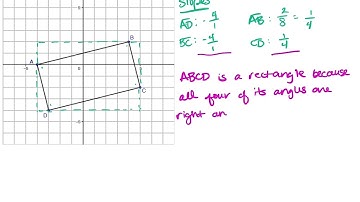 Slopes
AD: -4/1 AB: 2/8 = 1/4
BC: -4/1 CD: 1/4
A
B
C
D
ABCD is a rectangle because
all four of its angles are
right an